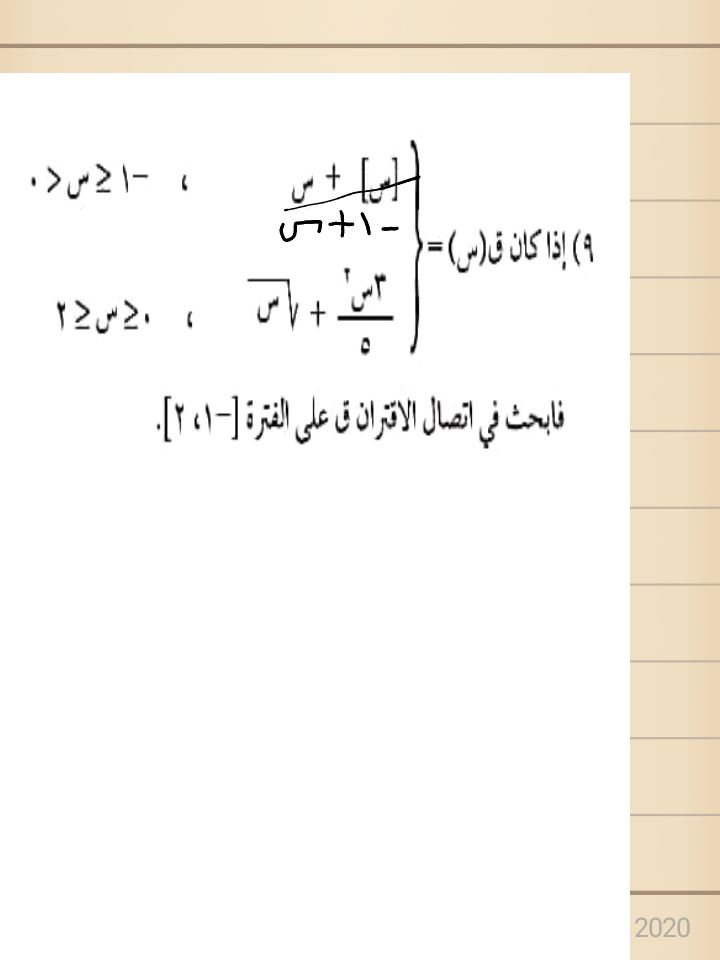 [س] + س ، -١ ≤ س < ٠
-١ + س
٩) إذا كان ق(س) =
٣س٢/٥ + √س ، ٠ ≤ س ≤ ٢
فابحث في اتصال الاقتران ق على الفترة [-١، ٢].
2020